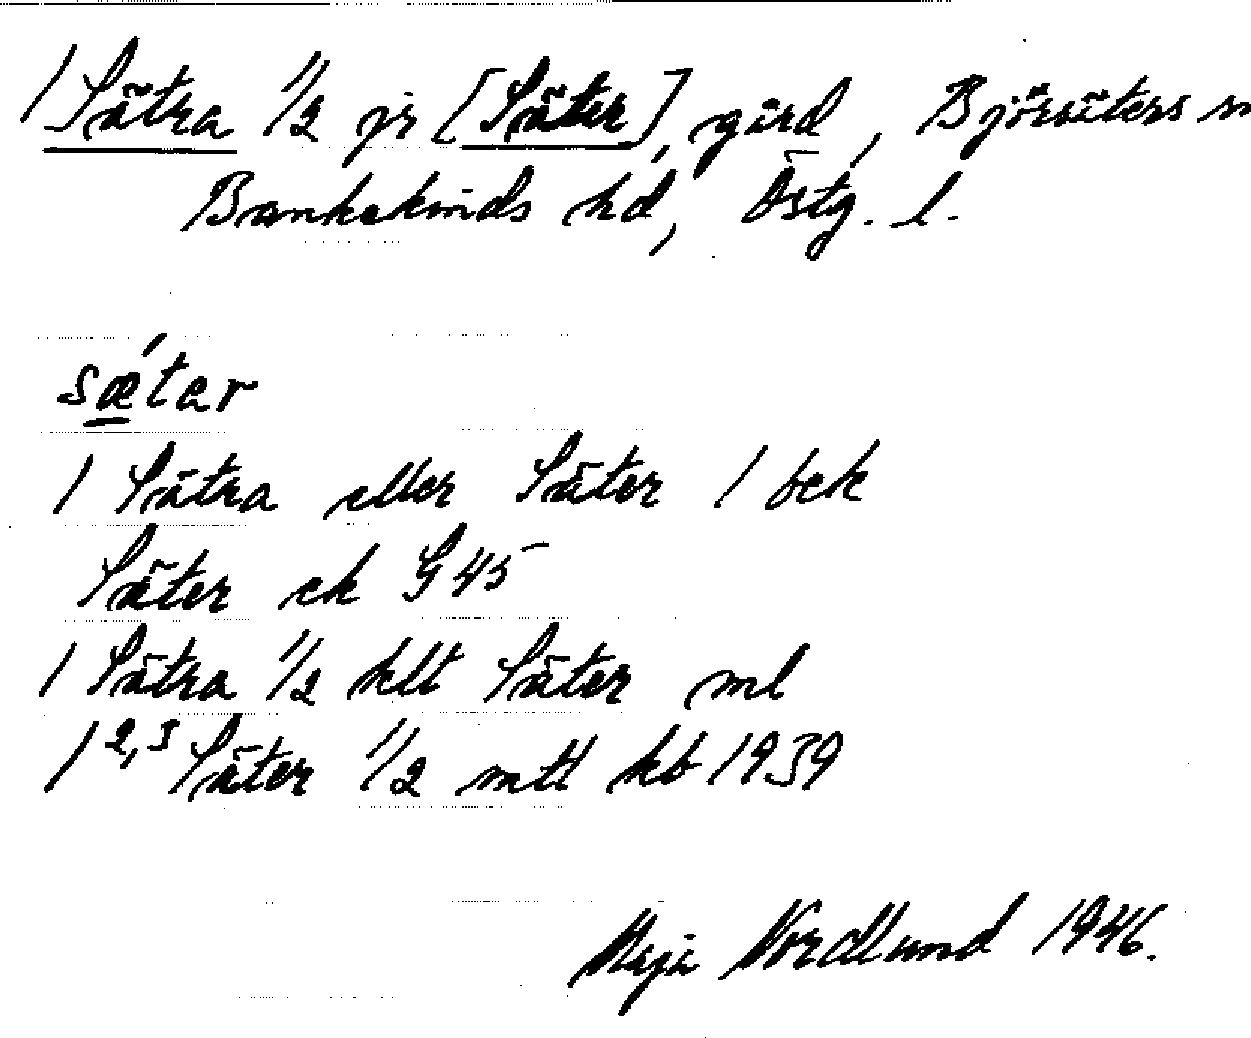 1 Sätra 1/2 jr [Säter], gård, Björsäters sn
Bankekinds hd, Östg. l.
sǽtar
1 Sätra eller Säter 1 bek
Säter ek G 45
1 Sätra 1/2 hlt Säter ml
1 2,3 Säter 1/2 mtl kb 1939
Maja Nordlund 1946.